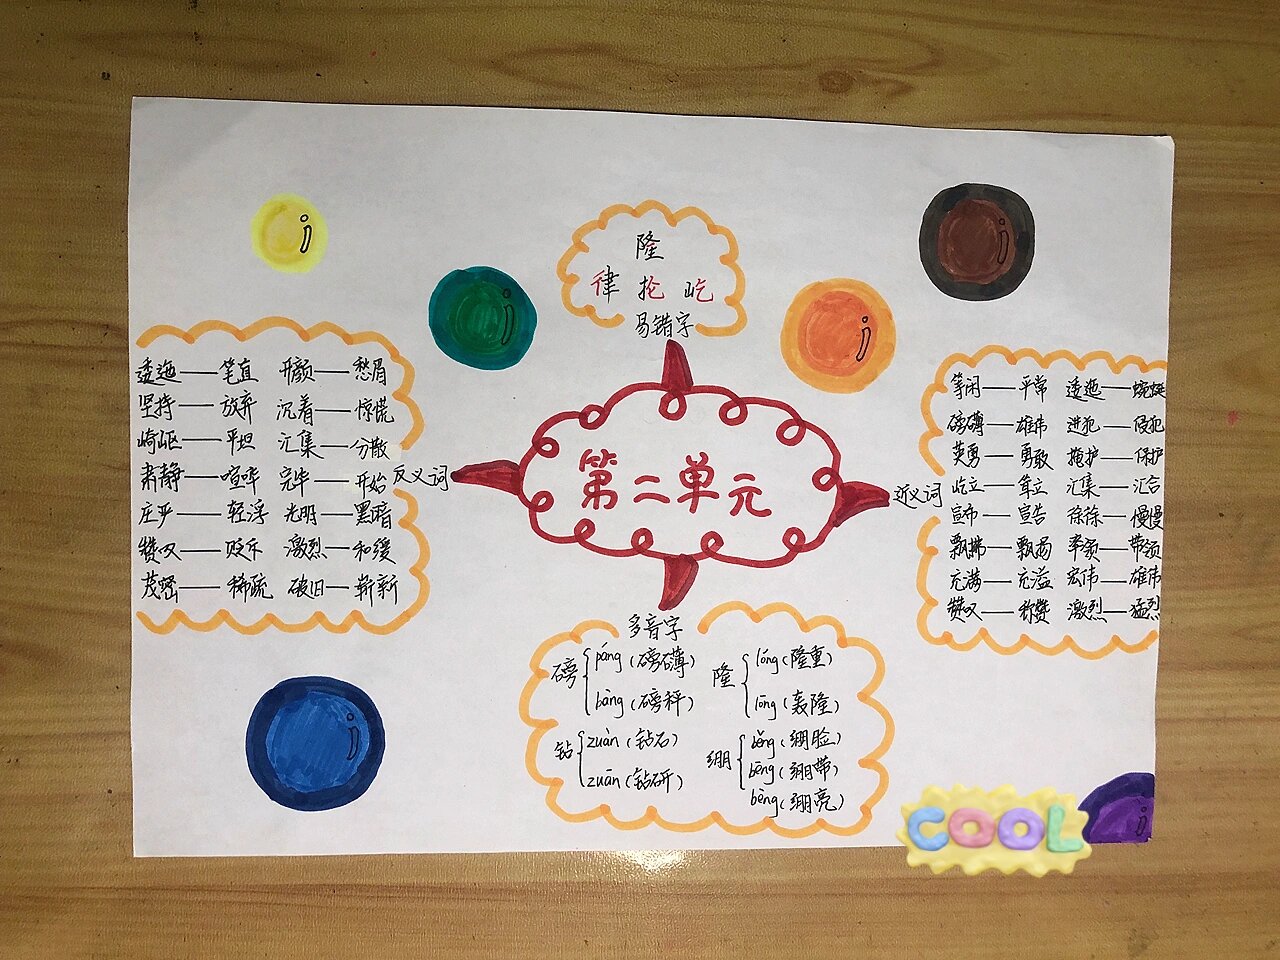 第二单元
隆
律 抡 屹
易错字
反义词
逶迤——笔直 开颜——愁眉
坚持——放弃 沉着——惊慌
崎岖——平坦 汇集——分散
肃静——喧哗 完毕——开始
庄严——轻浮 光明——黑暗
赞叹——贬斥 激烈——和缓
茂密——稀疏 破旧——崭新
近义词
等闲——平常 逶迤——蜿蜒
磅礴——雄伟 进犯——侵犯
英勇——勇敢 掩护——保护
屹立——耸立 汇集——汇合
宣布——宣告 徐徐——慢慢
飘拂——飘扬 率领——带领
充满——充溢 宏伟——雄伟
赞叹——称赞 激烈——猛烈
多音字
磅{páng(磅礴)
bàng(磅秤)
隆{lóng(隆重)
lōng(轰隆)
钻{zuàn(钻石)
zuān(钻研)
绷{běng(绷脸)
bēng(绷带)
bèng(绷亮)
COOL